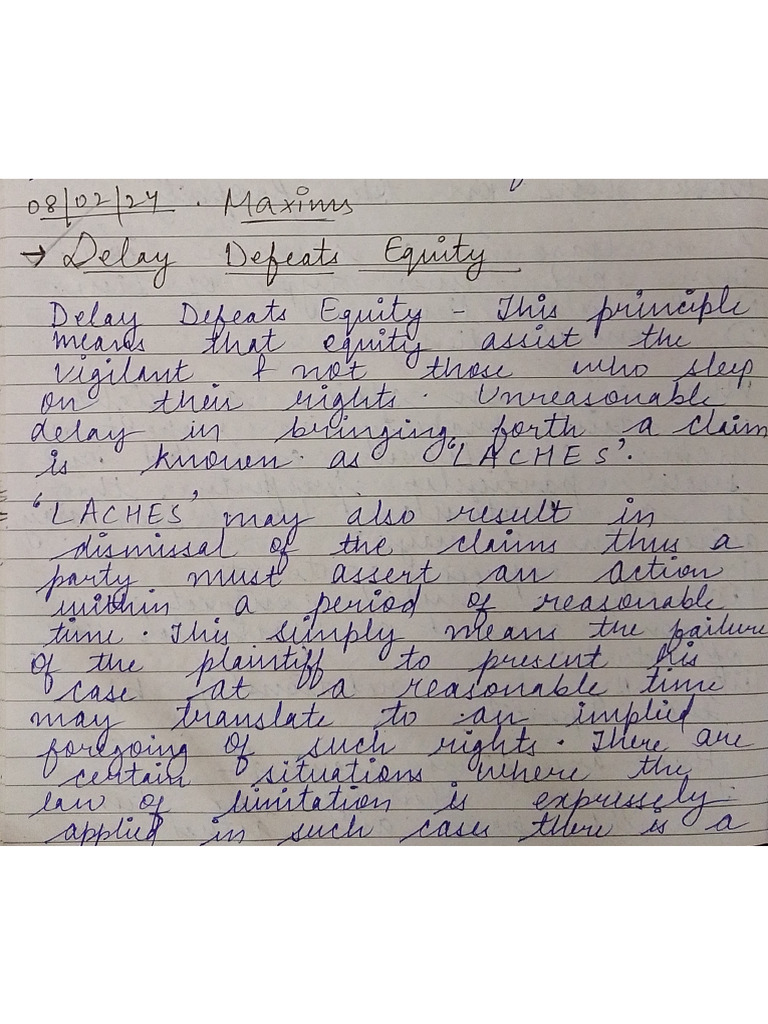 08/02/24 . Maxims
→ Delay Defeats Equity
Delay Defeats Equity - This principle
means that equity assist the
vigilant & not those who sleep
on their rights. Unreasonable
delay in bringing forth a claim
is known as 'LACHES'.
'LACHES' may also result in
dismissal of the claims thus a
party must assert an action
within a period of reasonable
time. This simply means the failure
of the plaintiff to present his
case at a reasonable time
may translate to an implied
foregoing of such rights. There are
certain situations where the
law of limitation is expressely
applied in such cases there is a